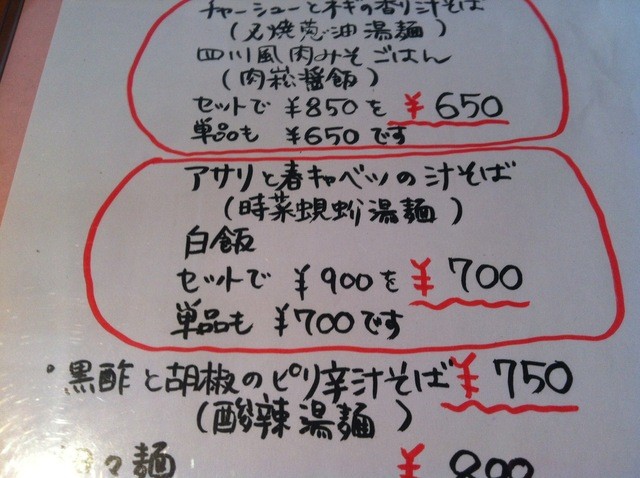 チャーシューとネギの香り汁そば
(叉焼葱油湯麺)
四川風肉みそごはん
(肉崧醤飯)
セットで ¥850を ¥650
単品も ¥650です
アサリと春キャベツの汁そば
(時菜蜆蚧湯麺)
白飯
セットで ¥900を ¥700
単品も ¥700です
・黒酢と胡椒のピリ辛汁そば ¥750
(酸辣湯麺)
々麺 ¥800